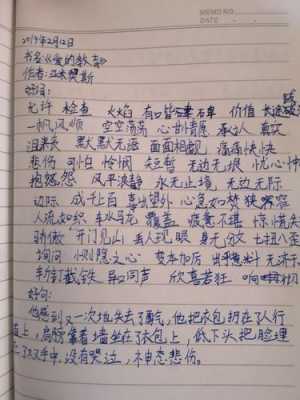 MEMO NO.
DATE
2019年2月12日
书名《爱的教育》
作者:亚米契斯
好词:
允许 检查 火焰 有口皆碑 价值 长途跋
一帆风顺 空空荡荡 心甘情愿 承认 真实
默默无语 面面相觑 痛痛快快
悲伤 可怕 怜悯 短暂 无边无垠
抱怨 风平浪静 永无止境 无边无际
边际 成千上百 喜出望外 心急如焚
车水马龙 覆盖 疲惫不堪 惊慌失
骄傲 开门见山 丢人现眼 身无分文 七扭八歪
询问 恻隐之心 变本加厉 出乎意料 无济于
斩钉截铁 异口同声 欣喜若狂 响
好句:
他感到又一次地失去了勇气,他把衣包扔在了人行
道上,肩膀靠着墙坐在了衣包上,低下头把脸埋
在了双手中,没有哭泣,神态悲伤。